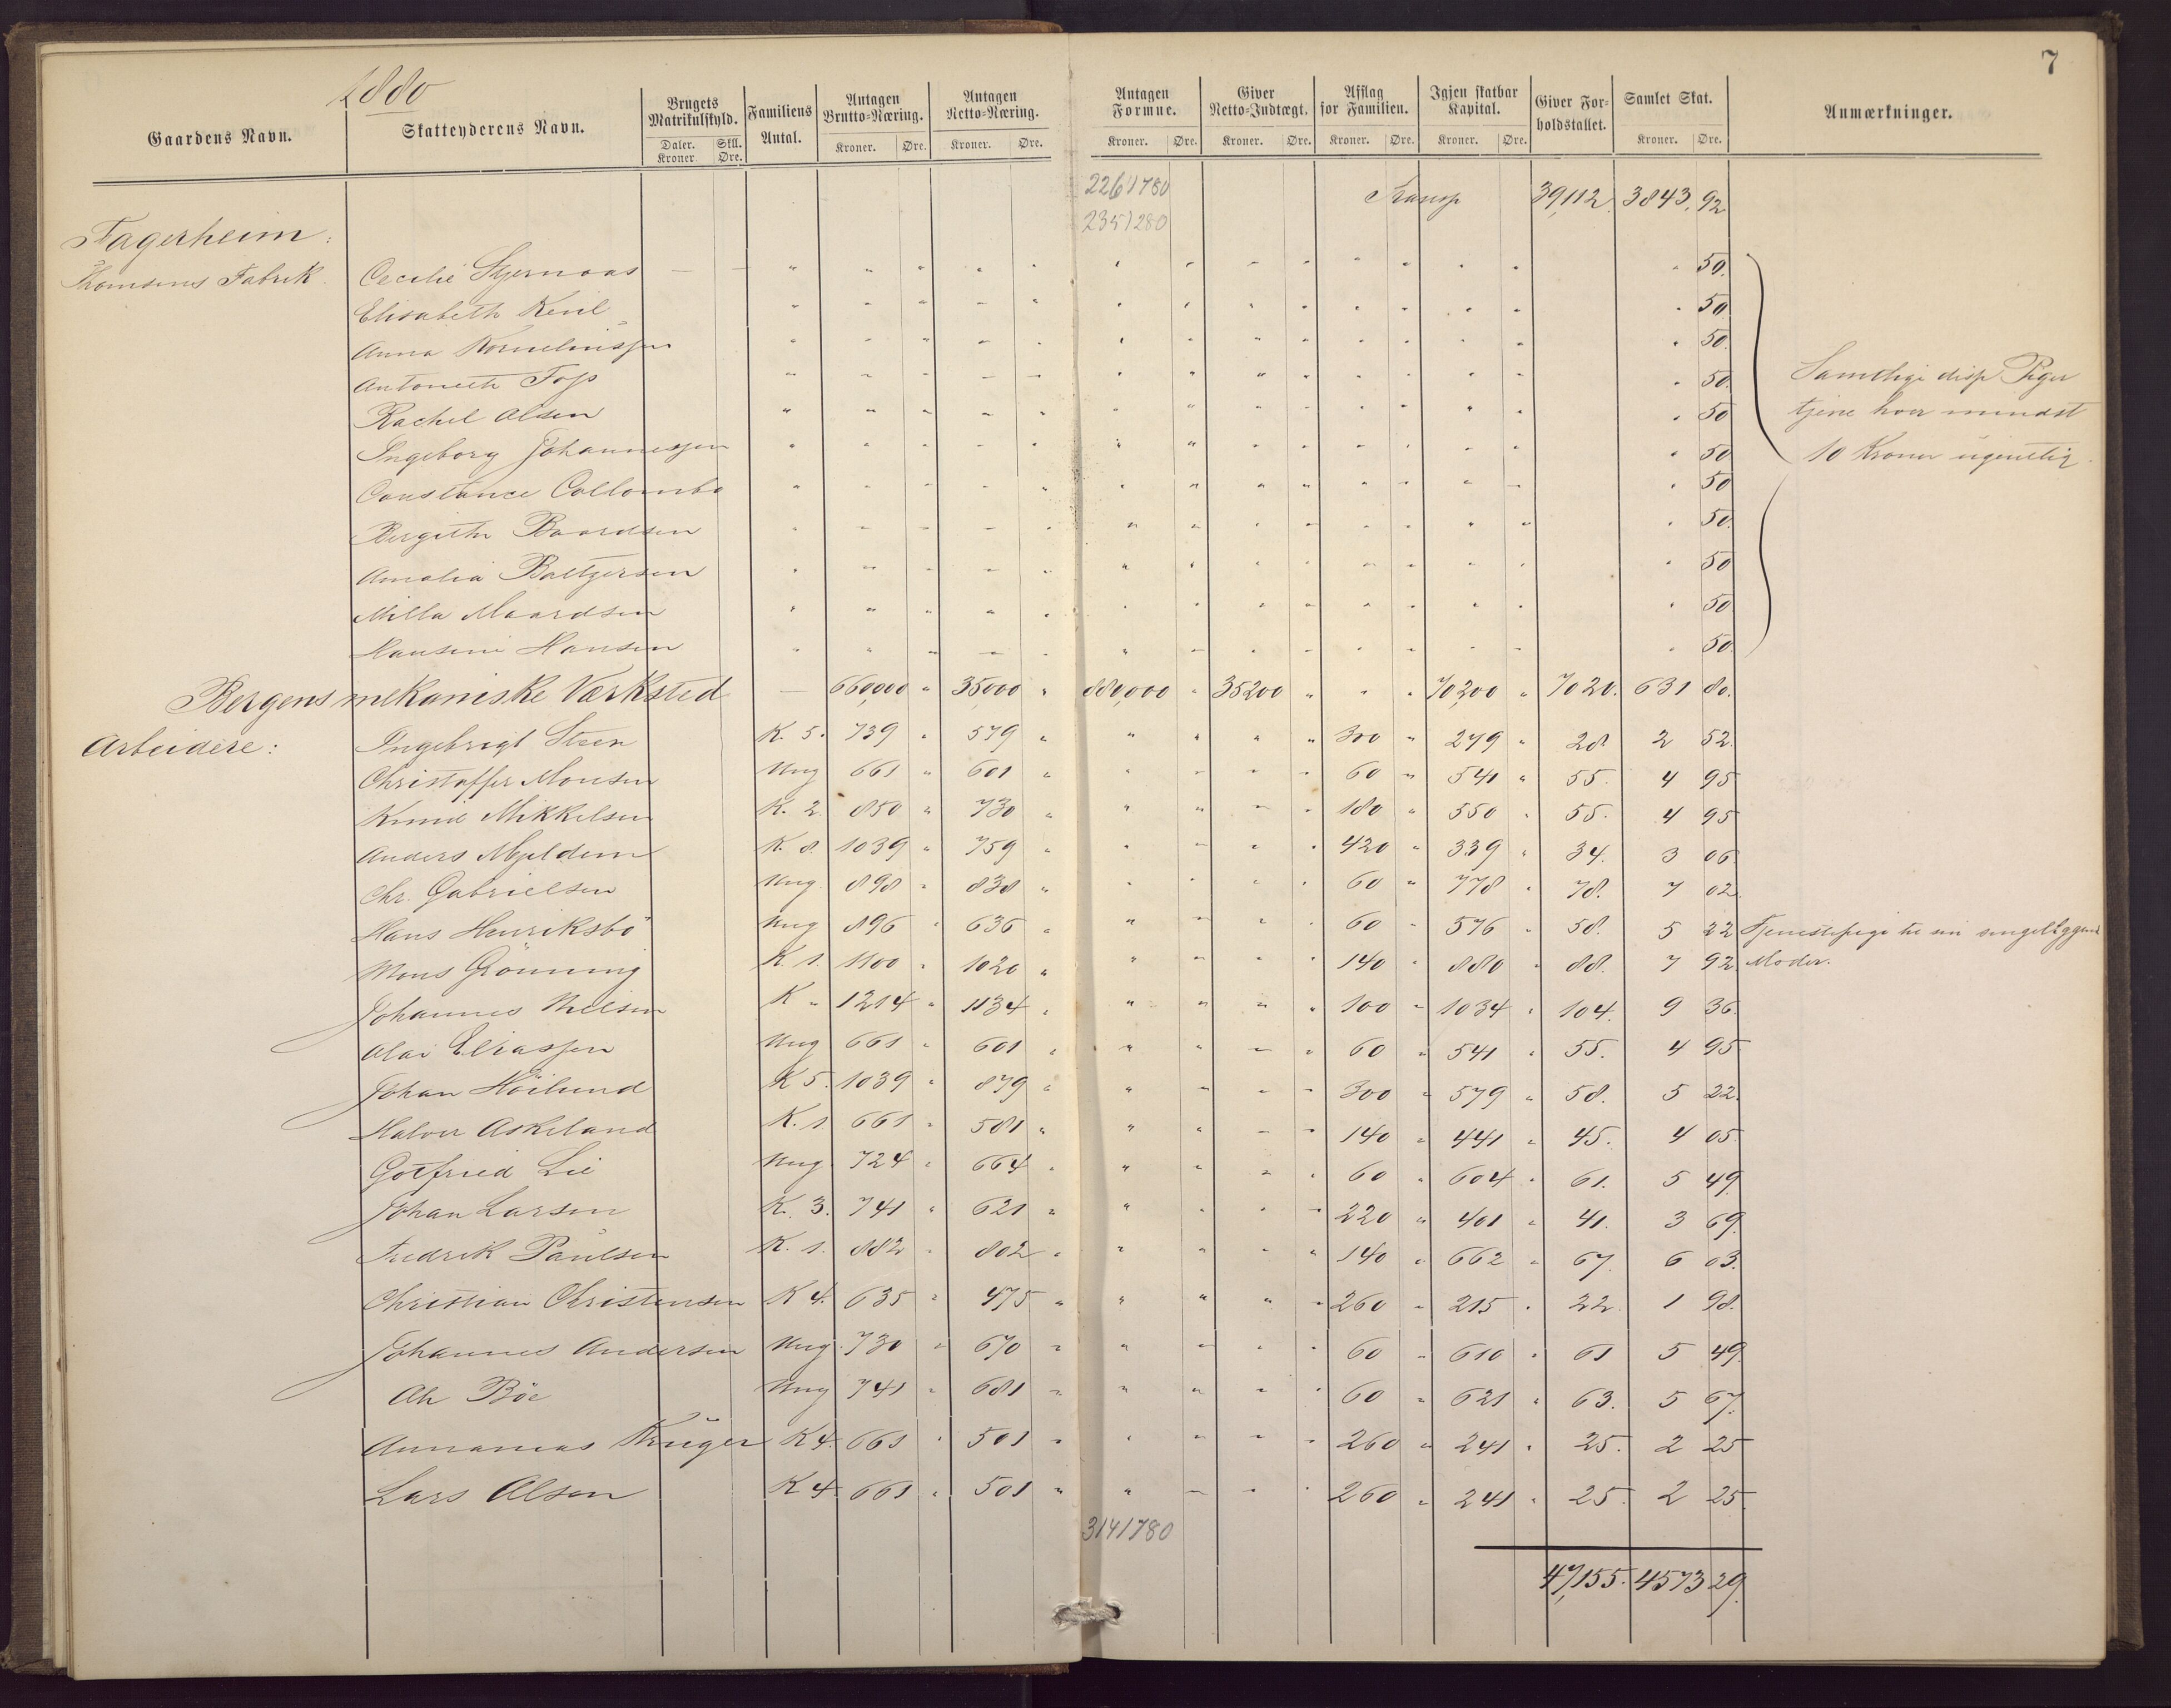 7
1880
Gaardens Navn. Skatteyderens Navn. Brugets Matrikulskyld. Daler. Kroner Skll. Øre. Familiens Antal. Antagen Brutto-Næring. Kroner. Øre. Antagen Netto-Næring. Kroner. Øre. Antagen Formue. Kroner. Øre. Giver Netto-Indtægt. Kroner. Øre. Afslag for Familien. Kroner. Øre. Igjen skatbar Kapital. Kroner. Øre. Giver Forholdstallet. Samlet Skat. Kroner. Øre. Anmærkninger.
2261780 Transp 39,112. 3843. 92
2351280
Fagerheim:
Thomsens Fabrik. Cecilie Stjernaas — — " " " " " " " " " " " " " " 50.
Elisabeth " " " " " " " " " " " " " " 50
Anna Korneliussen " " " " " " " " " " " " " " 50.
Antonette " " " " " " " " " " " " " " 50.
Rachel Olsen " " " " " " " " " " " " " " 50
Ingeborg Johannessen " " " " " " " " " " " " " " 50
Constance Collombo " " " " " " " " " " " " " " 50
Bergithe Baardsen " " " " " " " " " " " " " " 50.
Amalia Baltzersen " " " " " " " " " " " " " " 50
Milla Maardsen " " " " " " " " " " " " " " 50
Hansine Hansen " " " " " " " " " " " " " " 50
Samtlige disse Piger
tjene hver mindst
10 Kroner ugentlig.
Bergens mekaniske Værksted — 660,000 " 35000 " 880,000 " 35200 " " " 70,200 " 7020. 631 80.
Arbeidere: Ingebrigt Steen K. 5. 739 " 579 " " " " " 300 " 279 " 28 2 52.
Christoffer Monsen Ung 661 " 601 " " " " " 60 " 541 " 55. 4 95
Knud Mikkelsen K. 2. 850 " 730 " " " " " 180 " 550 " 55. 4 95
Anders Mjeldem K. 8. 1039 " 759 " " " " " 420 " 339 " 34. 3 06
Chr. Gabrielsen Ung. 898 " 838 " " " " " 60 " 778 " 78. 7 02
Hans Henriksbö Ung 896 " 636 " " " " " 60 " 576 " 58. 5 22 Tjenestepige til sin sengeliggende
Mons Grönning K 1. 1100 " 1020 " " " " " 140 " 880 " 88. 7 92 Moder.
Johannes Nielsen K " 1214 " 1134 " " " " " 100 " 1034 " 104. 9 36.
Olai Eliassen Ung 661 " 601 " " " " " 60 " 541 " 55. 4 95
Johan Höilund K 5. 1039 " 879 " " " " " 300 " 579 " 58. 5 22.
Halvor Askeland K. 1 661 " 581 " " " " " 140 " 441 " 45. 4 05
Gotfried Lie Ung. 724 " 664 " " " " " 60 " 604 " 61. 5 49.
Johan Larsen K. 3. 741 " 621 " " " " " 220 " 401 " 41. 3 69.
Fredrik Paulsen K. 1. 882 " 802 " " " " " 140 " 662 " 67. 6 03.
Christian Christensen K 4. 635 " 475 " " " " " 260 " 215 " 22. 1 98.
Johannes Andersen Ung. 730 " 670 " " " " " 60 " 610 " 61 5 49.
Ole Böe Ung 741 " 681 " " " " " 60 " 621 " 63. 5 67.
Annanias Krüger K 4. 661 " 501 " " " " " 260 " 241 " 25. 2 25
Lars Olsen K 4. 661 " 501 " " " " " 260 " 241 " 25. 2 25.
3141780
47,155. 4573 29.